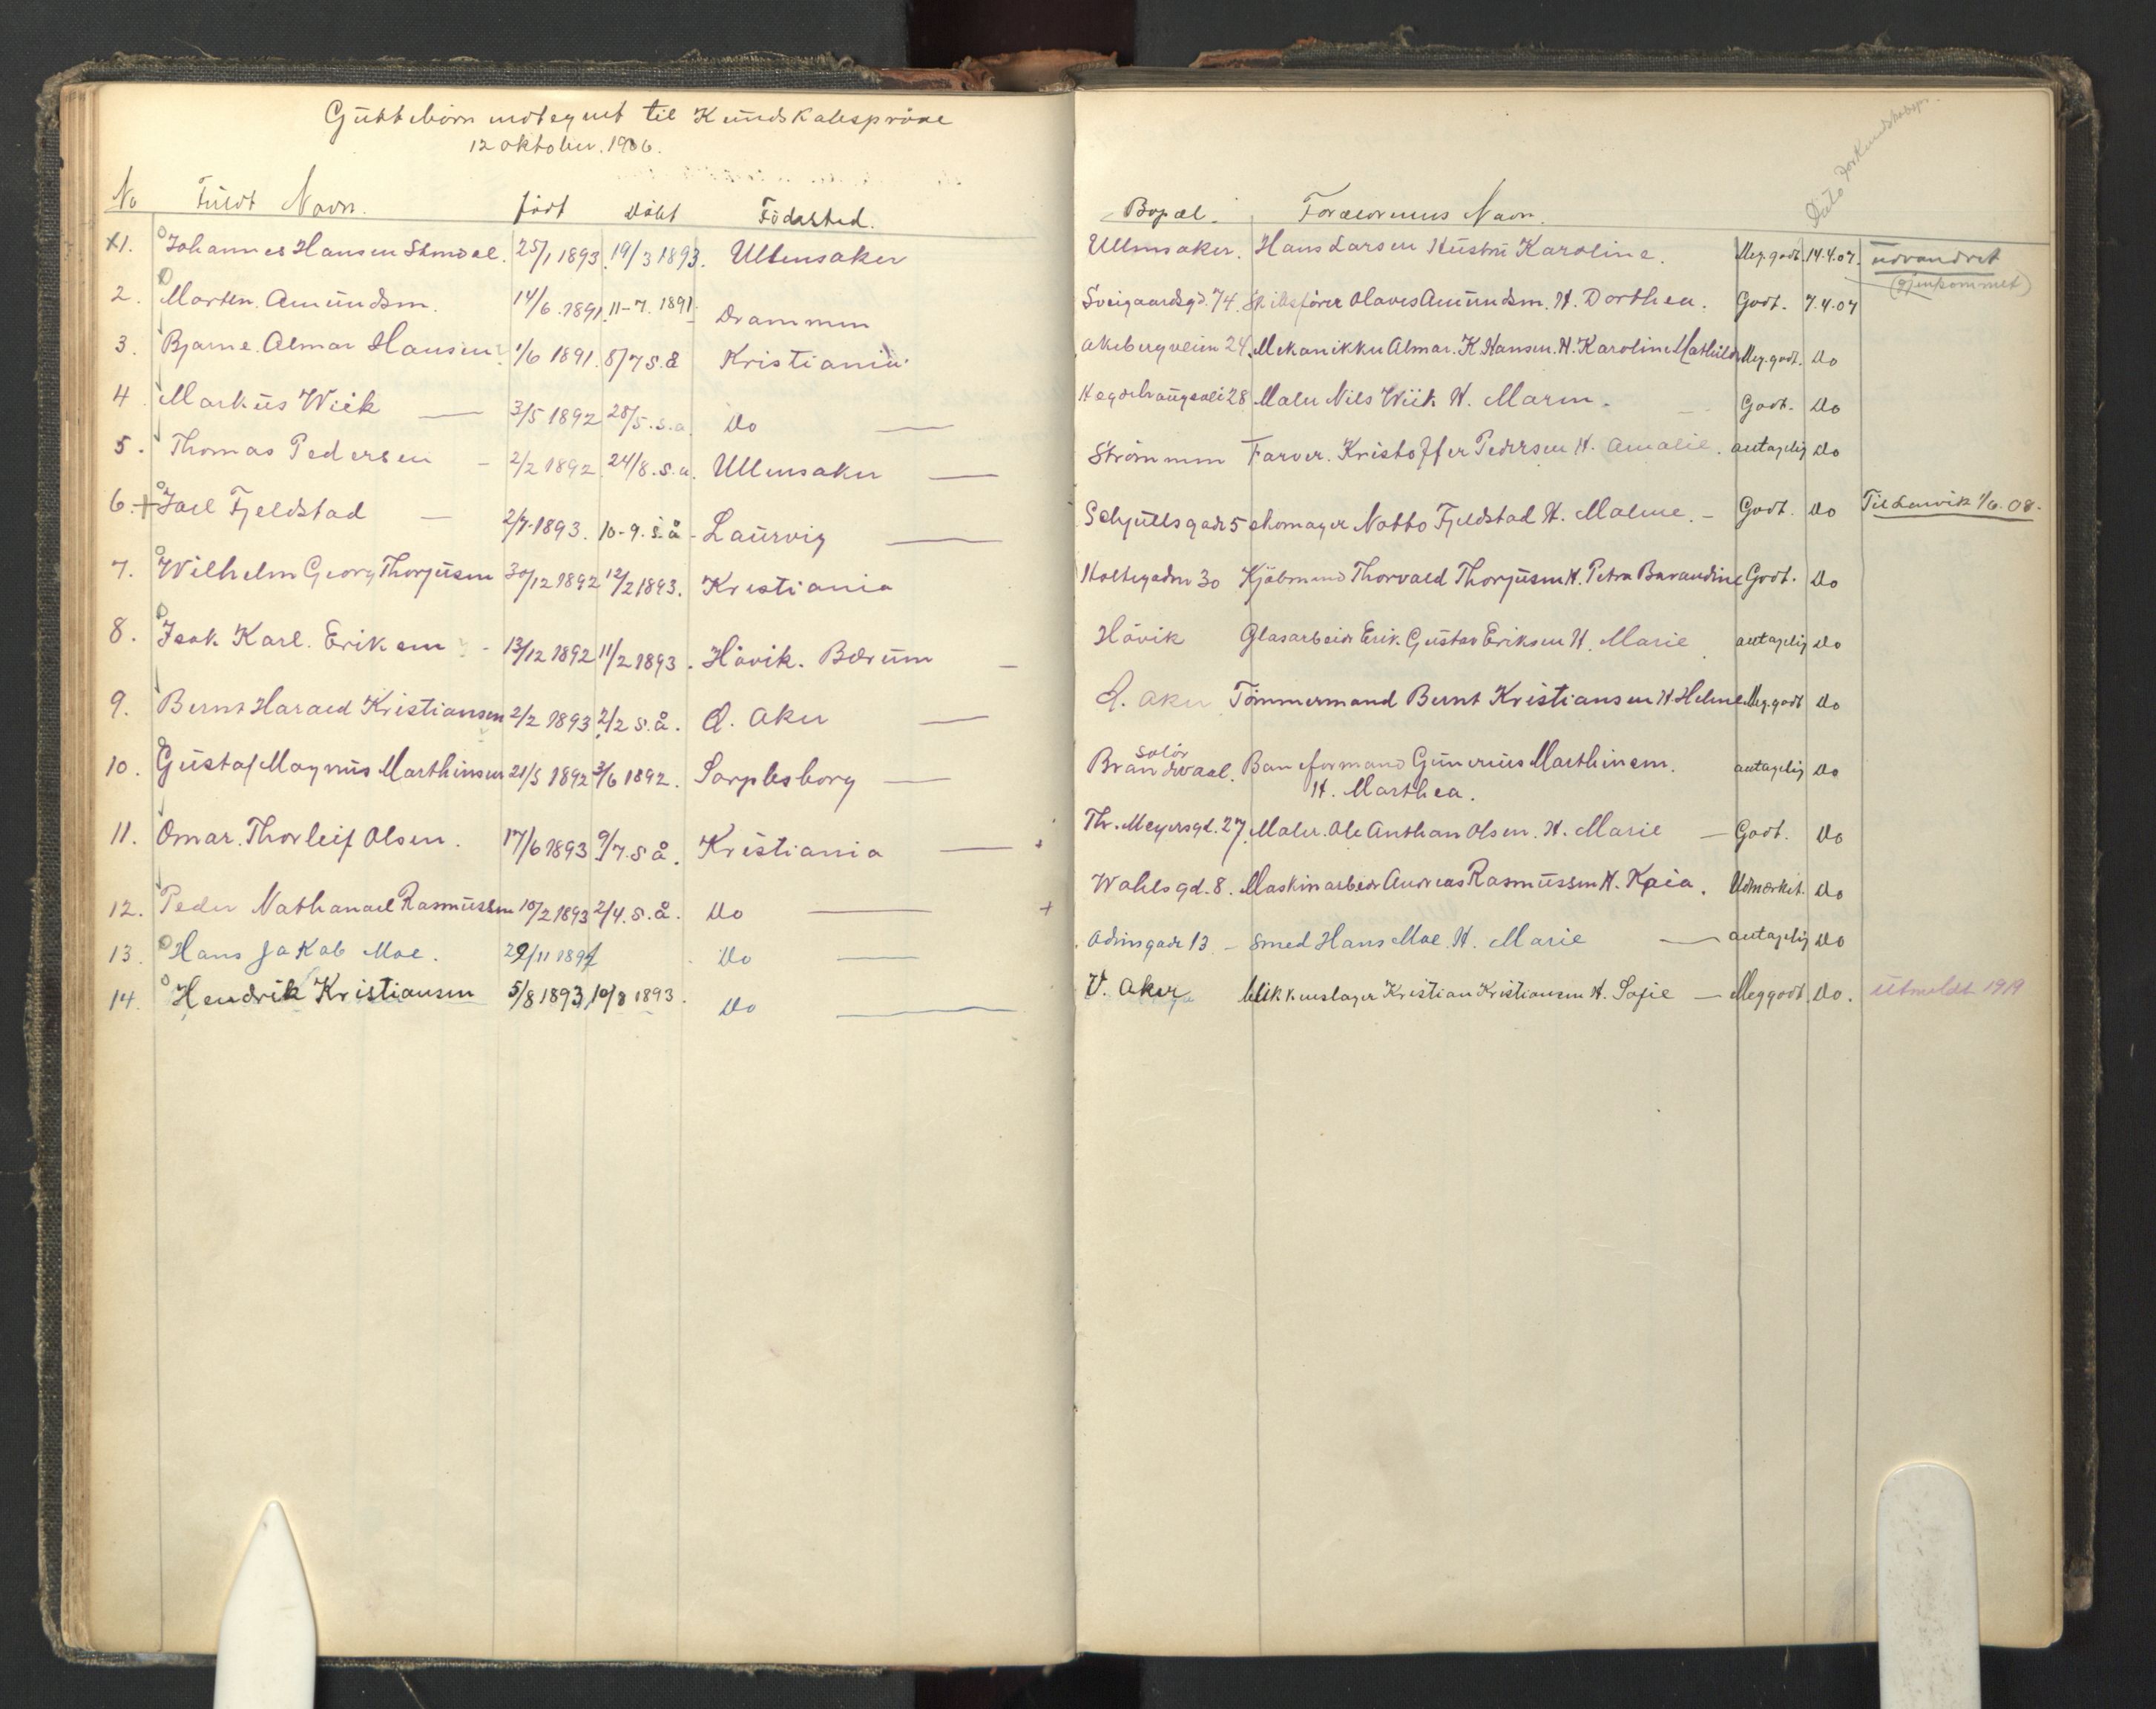 Guttebørn modtagnet til Kundskabsprøve
12 oktober. 1906.
No Fuldt Navn. født Døbt Födested.
X1. Johannes Hansen 25/1 1893. 19/3 1893. Ullensaker
2. Morten. Amundsen. 14/6. 1891. 11-7. 1891. Drammen
3. Bjarne. Almar Hansen 1/6 1891. 8/7 s.å Kristiania
4. Markus Wiik — 3/5 1892 28/5. s.a. Do —
5. Thomas Pedersen - 2/2 1892. 24/8. s.a. Ullensaker —
6. + Joel Fjeldstad — 2/7. 1893. 10-9. s.å - Laurvig —
7. Wilhelm Georg Thorjusen 30/12 1892 12/2 1893. Kristiania
8. Isak Karl. Eriksen - 13/12 1892 11/2 1893. Hövik. Bærum —
9. Bernt Harald Kristiansen 2/2 1893 2/2 s.å. Ø. Aker —
10. Gustaf Magnus Marthinsen 21/5 1892 3/6 1892. Sarpsborg —
11. Omar. Thorleif Olsen. 17/6 1893 9/7. s å. Kristiania —
12. Peder Nathanael Rasmussen 10/2 1893 2/4. s.å. Do —
13. Hans Jakob Moe. 29/11 1891 Do —
14. Hendrik Kristiansen 5/8 1893 10/8 1893. Do —
Dato for Kundskabspr.
Bopæl. Forældrenes Navn.
Ullensaker. Hans Larsen Hustru Karoline. Meg. godt 14.4.07. udvandret
(gjenkommet)
Sveigaardsgd. 74. Skibsfører Olaves Amundsen. H. Dorthea. Godt. 7.4.07
Akebergveien 24. Mekanikker Almar. K. Hansen. H. Karoline Mathilde Meg. godt. Do
Hegdehaugsvei 28 Maler Nils Wiik H. Maren. Godt. Do
Strömmen Farver. Kristoffer Pedersen H. Amalie. antagelig Do
Schjultsgade 5 skomager Notto Fjeldstad H. Malene. - Godt. Do Til Larvik 1/6. 08.
Holtegaden 30 Kjøbmand Thorvald Thorjusen H. Petra Barandine Godt. Do
Hövik Glasarbeider Erik Gustav Eriksen H. Marie antagelig Do
Ø. Aker Tömmermand Bernt Kristiansen H. Helene Meg. godt Do
Solør
Brandvaal. Baneformand Gunerius Marthinsen. antagelig Do
H. Marthea.
Th. Meyersgd. 27. Maler. Ole Anthon Olsen. H. Marie — Godt. Do
Wahlsgd. 8. Maskinarbeider Andreas Rasmussen H. Kaia. Udmærket. Do
Odinsgade 13 - Smed Hans Moe. H. Marie — antagelig Do
V. Aker blikkenslager Kristian Kristiansen H. Sofie — Meg godt. Do. Utmeldt 1919